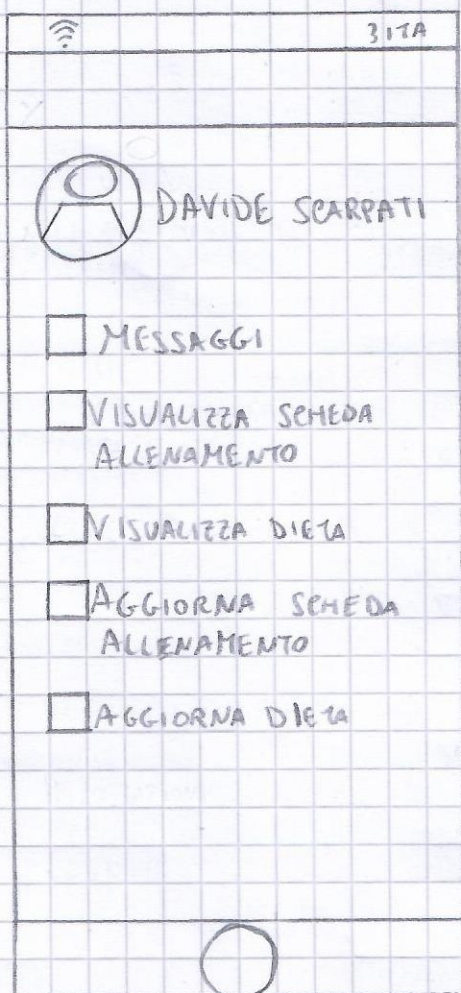 3ITA
DAVIDE SCARPATI
MESSAGGI
VISUALIZZA SCHEDA
ALLENAMENTO
VISUALIZZA DIETA
AGGIORNA SCHEDA
ALLENAMENTO
AGGIORNA DIETA